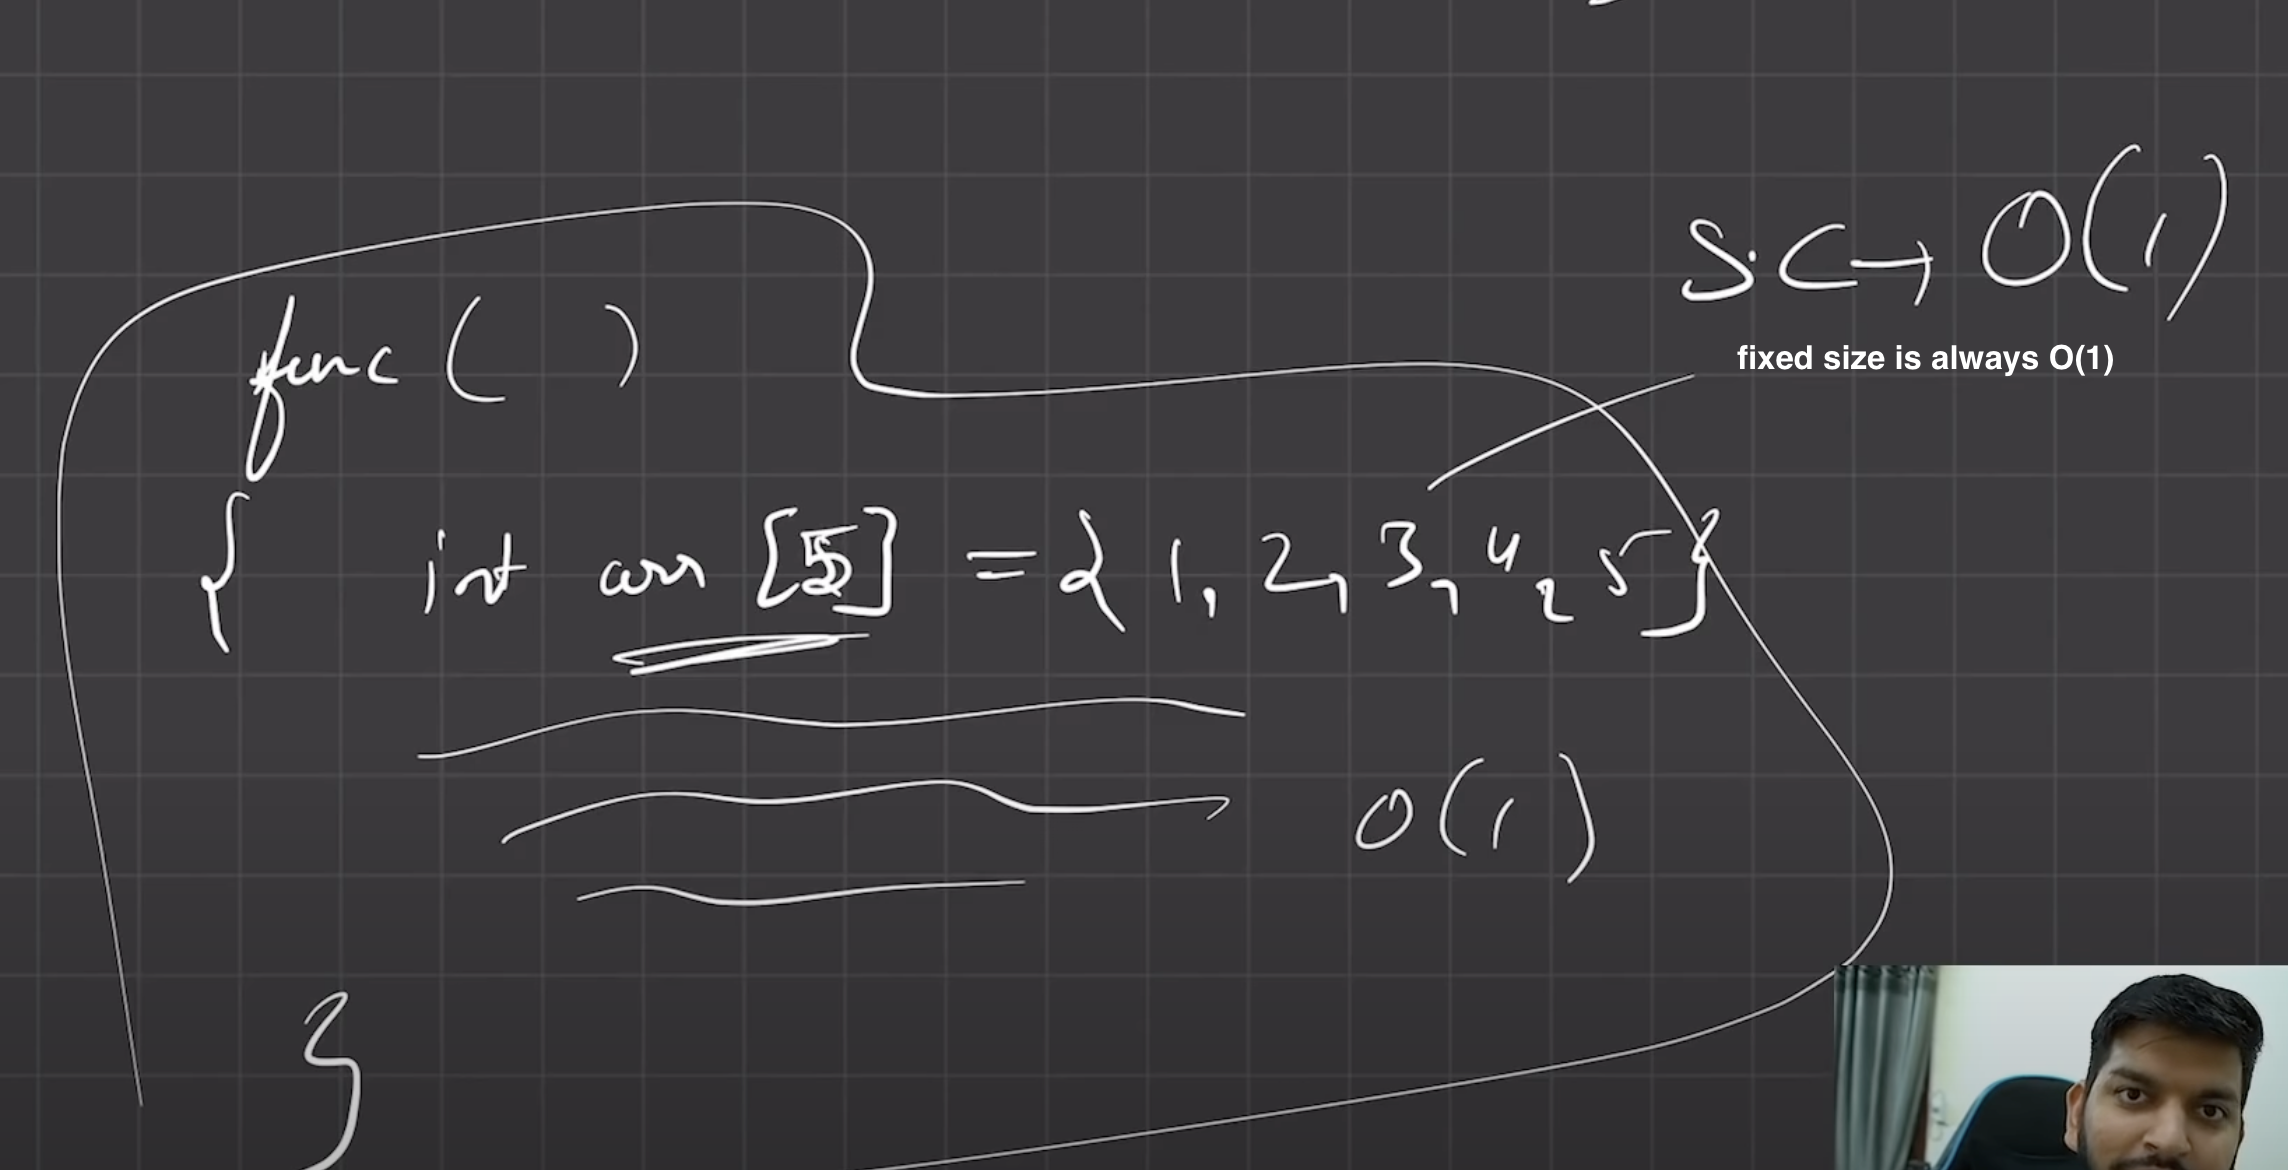 S.C → O(1)
fixed size is always O(1)
func ( )
{ int arr [5] = { 1, 2, 3, 4, 5 }
O(1)
}